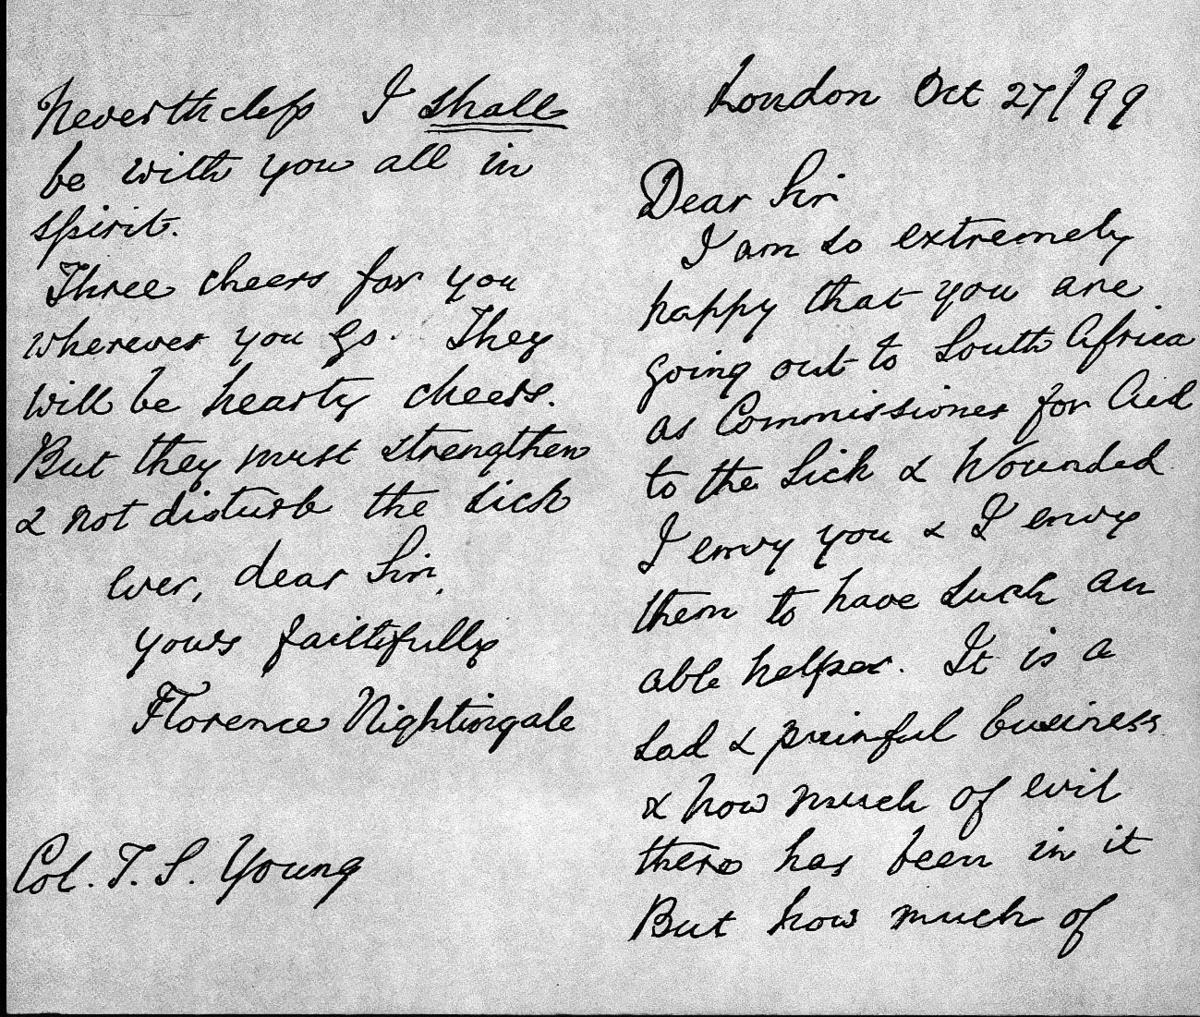 London Oct 27/99
Dear Sir
I am so extremely
happy that you are
going out to South Africa
as Commissioner for Aid
to the Sick & Wounded
I envy you & I envy
them to have such an
able helper. It is a
sad & painful business
& how much of evil
there has been in it
But how much of
Nevertheless I shall
be with you all in
spirit.
Three cheers for you
wherever you go. They
will be hearty cheers.
But they must strengthen
& not disturb the sick
ever, dear Sir,
yours faithfully
Florence Nightingale
Col. T. S. Young